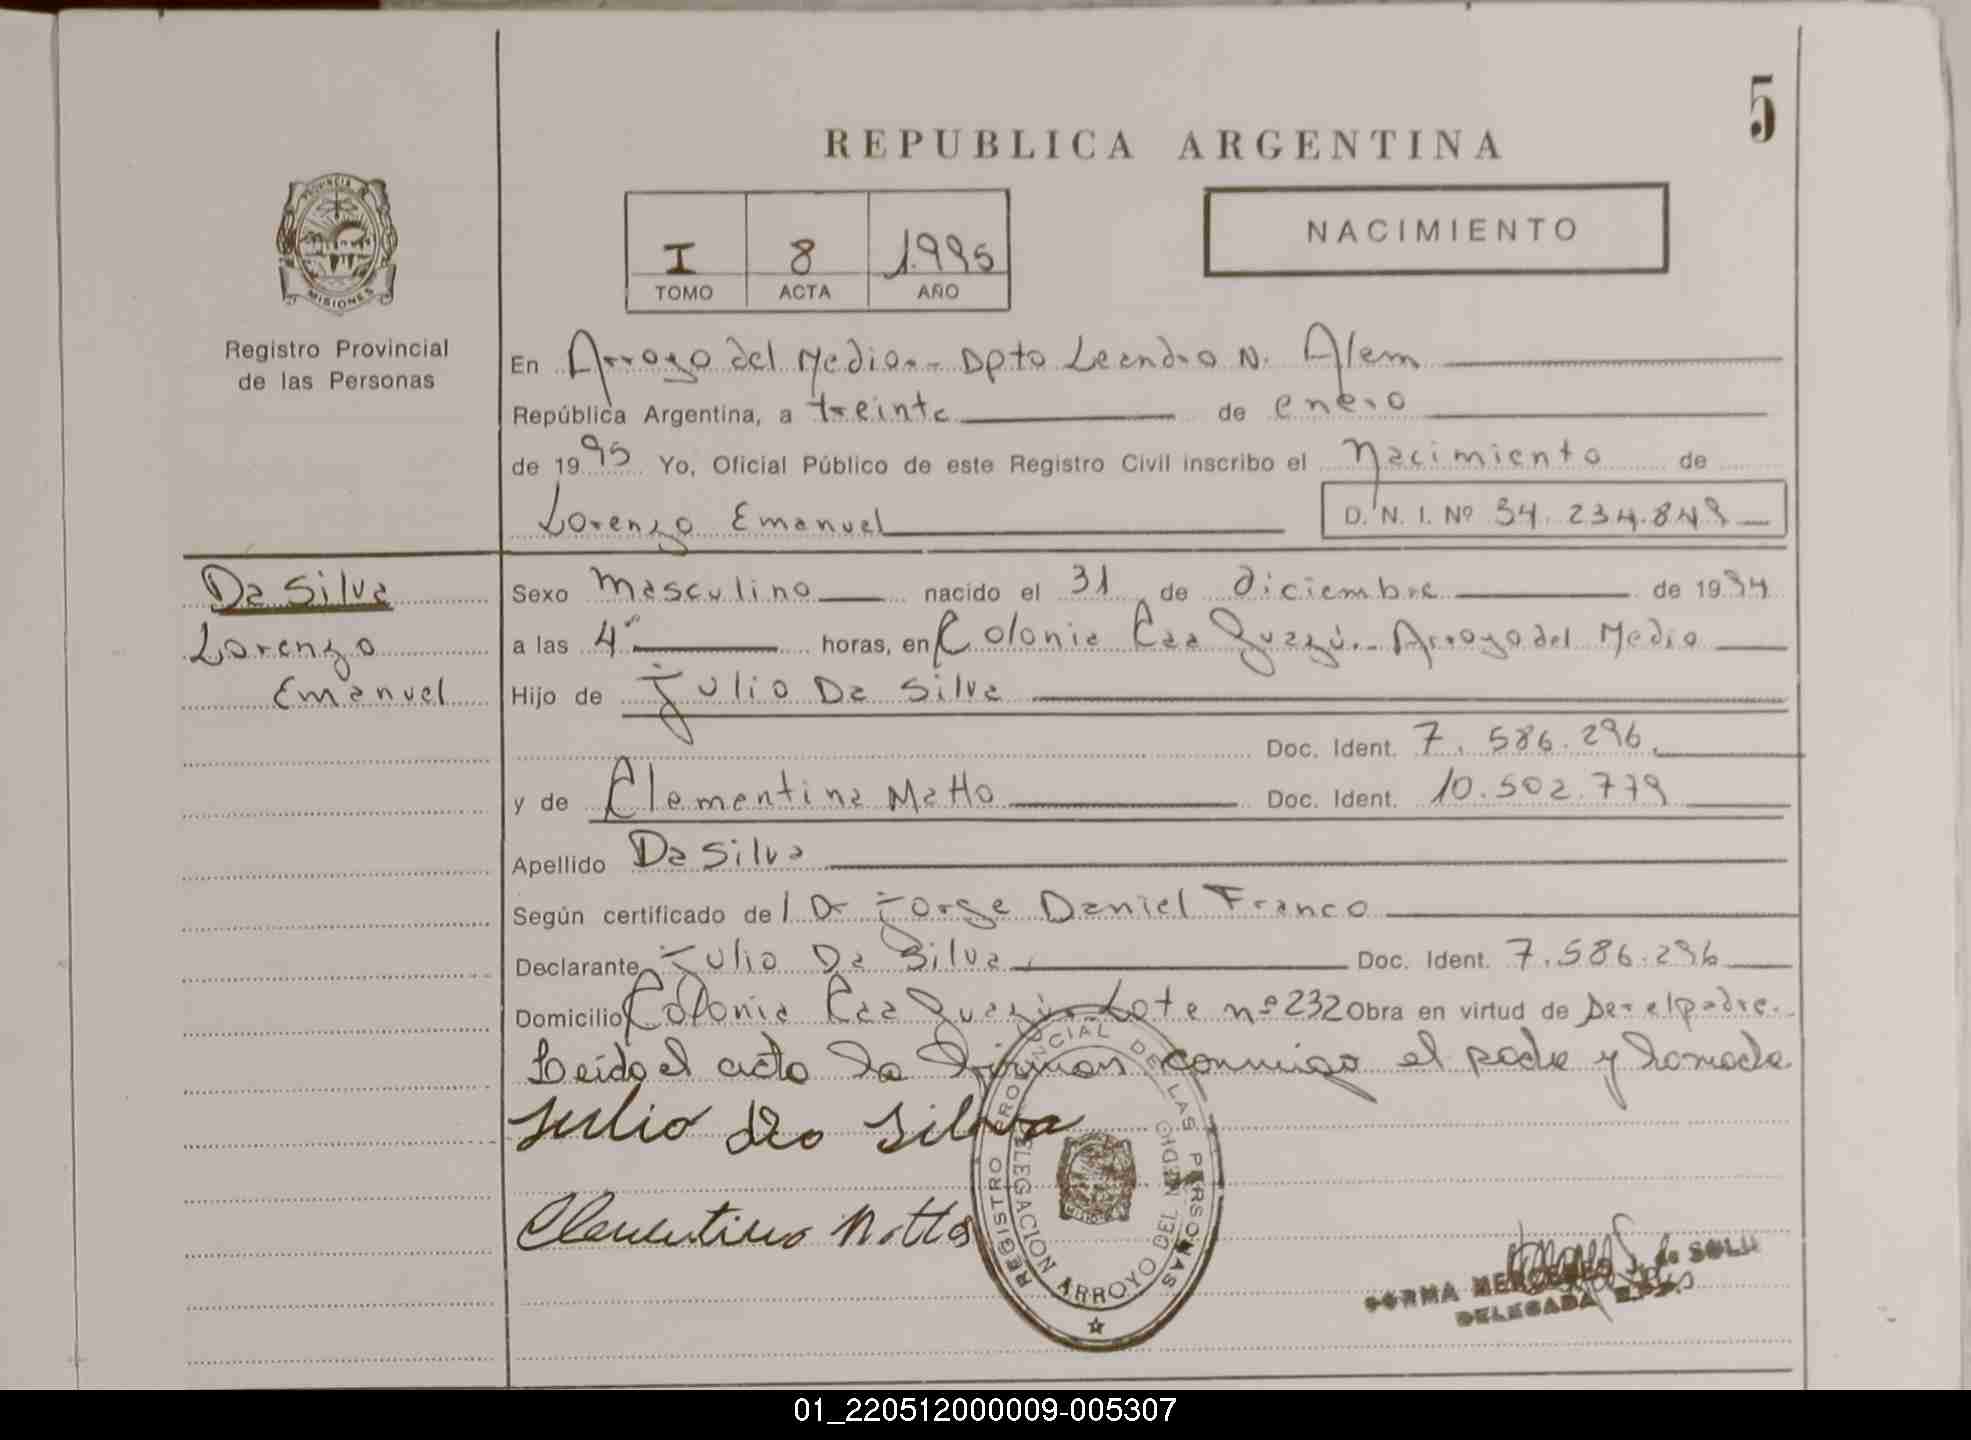 5
REPUBLICA ARGENTINA
PROVINCIA
MISIONES
Registro Provincial
de las Personas
I 8 1.995
TOMO ACTA AÑO
NACIMIENTO
En Arroyo del Medio.- Dpto Leandro N. Alem
República Argentina, a treinta de enero
de 1995 Yo, Oficial Público de este Registro Civil inscribo el Nacimiento de
Lorenzo Emanuel D. N. I. Nº 34.234.849
Da Silva
Lorenzo
Emanuel
Sexo Masculino nacido el 31 de diciembre de 1994
a las 4 horas, en Colonia Caa Guazú.- Arroyo del Medio
Hijo de Julio Da Silva
Doc. Ident. 7.586.296
y de Clementina Matto Doc. Ident. 10.502.779
Apellido Da Silva
Según certificado del Dr Jorge Daniel Franco
Declarante Julio Da Silva Doc. Ident. 7.586.296
Domicilio Colonia Caa Guazú Lote nº 232 Obra en virtud de Ser el padre.-
Leída el acta la firman conmigo el padre y la madre
Julio da Silva
Clementina Motta
REGISTRO PROVINCIAL DE LAS PERSONAS
DELEGACION ARROYO DEL MEDIO
NORMA MERCEDES de
DELEGADA
01_220512000009-005307